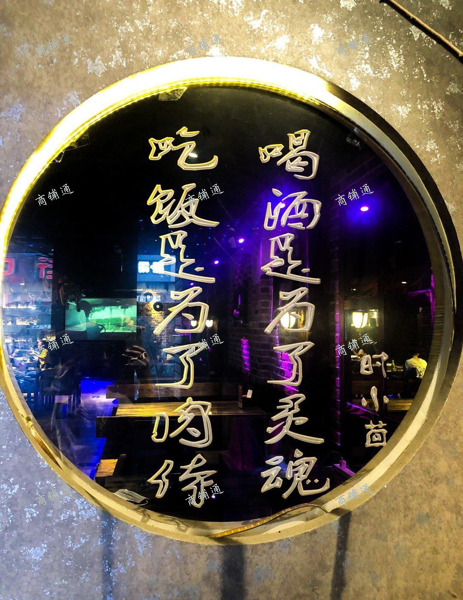 喝酒是为了灵魂
吃饭是为了肉体
时小茴
商铺通
商铺通
商铺通
商铺通
商铺通
商铺通
商铺通
商铺通
商铺通
商铺通
商铺通
商铺通